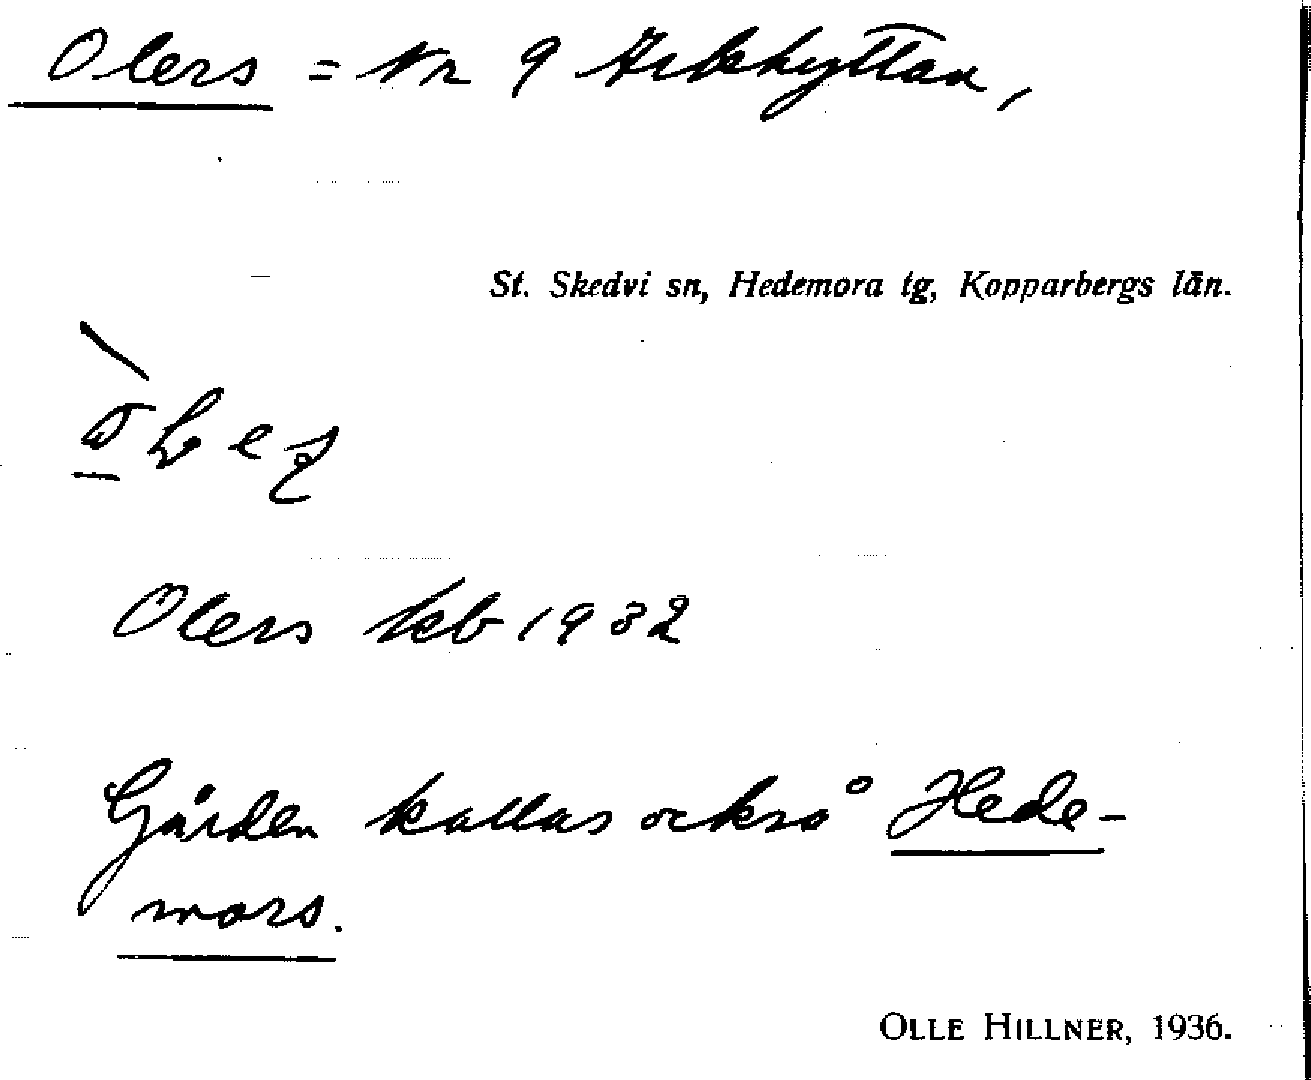 Olers = Nr 9 Arkhyttan,
St. Skedvi sn, Hedemora tg, Kopparbergs län.
Olers kb 1932
Gården kallas också Hede-
mors.
OLLE HILLNER, 1936.